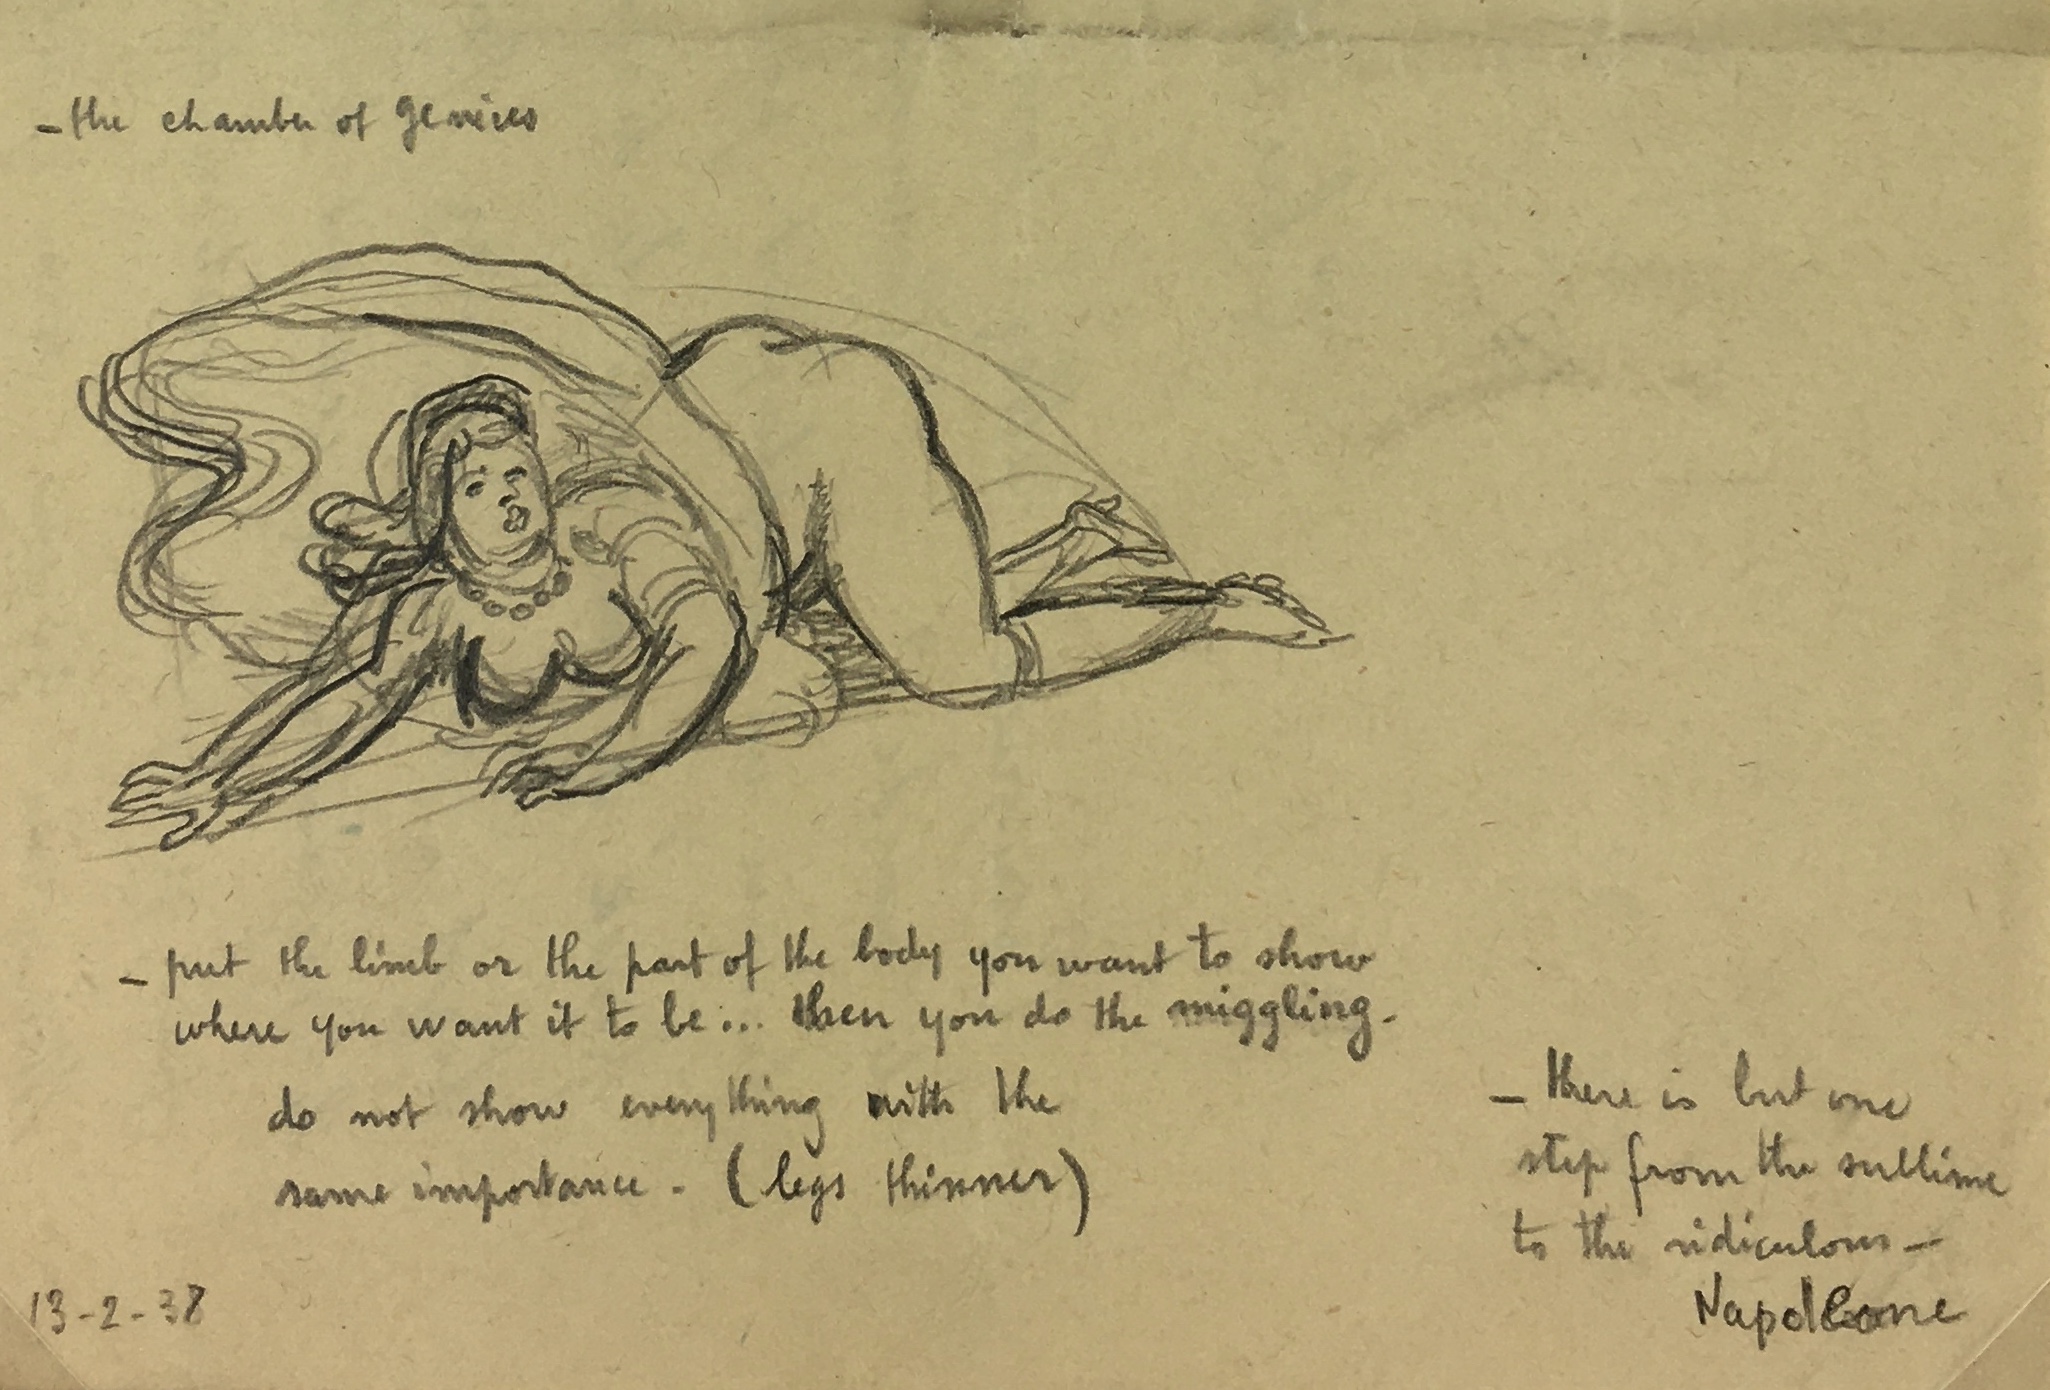 – the chamber of genices
– put the limb or the part of the body you want to show
where you want it to be ... then you do the miggling.
do not show everything with the
same importance. (legs thinner)
– there is but one
step from the sublime
to the ridiculous –
Napoleone
13-2-38